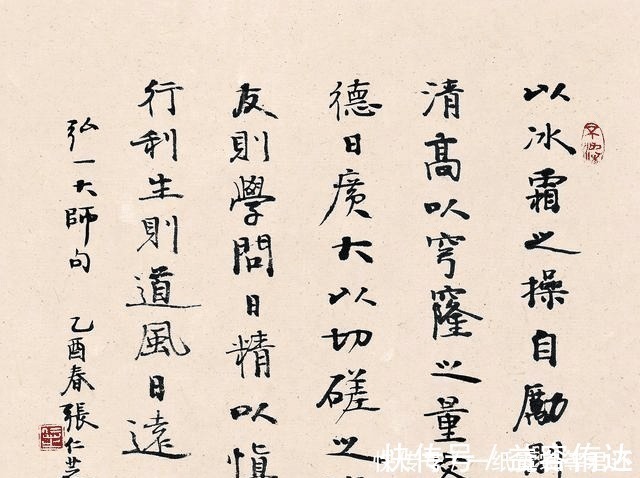 以冰霜之操自勵則
清高以穹窿之量
德日廣大以切磋之
友則學問日精以慎
行利生則道風日遠
弘一大師句
乙酉春張仁芝
快传号